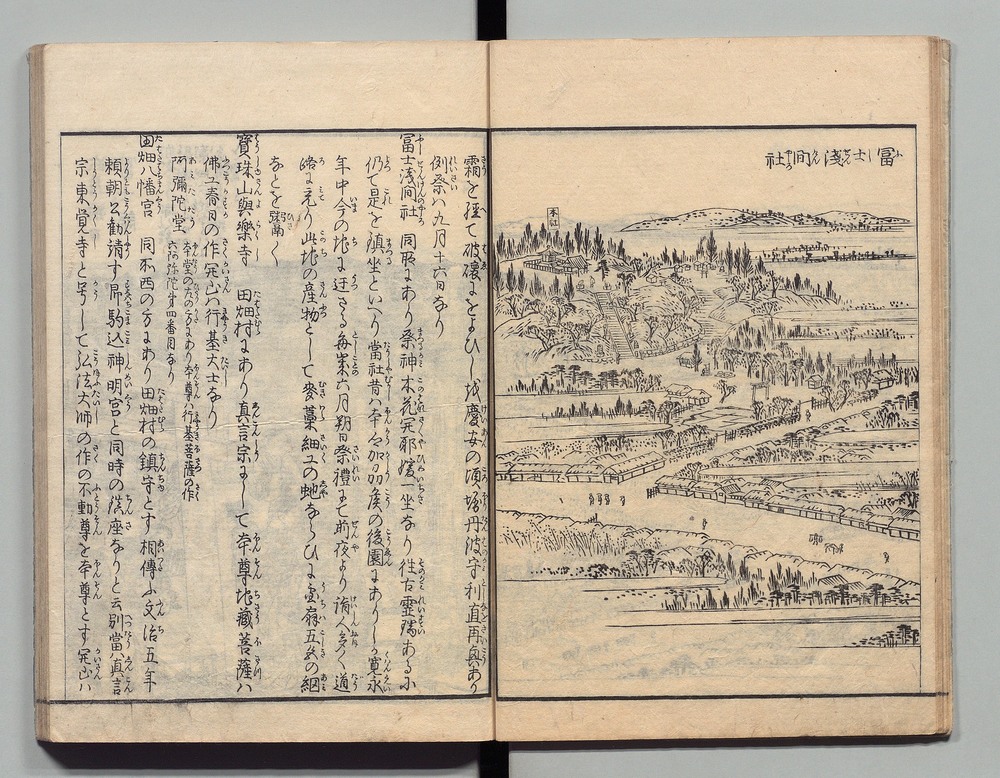 冨士淺間社
本社
霜を経て破壊におよひしを慶安の頃堀丹波守利直再興あり
例祭ハ九月十六日なり
冨士浅間社 同所にあり祭神木花開耶姫一坐なり往古霊陽あるに
仍て是を鎮坐といへり當社昔ハ本郷加州侯の後園にありしか寛永
年中今の地に迁さる毎歳六月朔日祭禮にて前夜より諸人多く道
路に充り此地の産物として麥藁細工の虵ならひに団扇五色の網
なとを鬻く
寳珠山與樂寺 田畑村にあり真言宗にして本尊地藏菩薩ハ
佛工春日の作開山ハ行基大士なり
阿彌陀堂 本堂の左の方にあり本尊ハ行基菩薩の作
六阿弥陀第四番目なり
田畑八幡宮 同所西の方にあり田畑村の鎮守とす相傳ふ文治五年
頼朝公勧請す昂駒込神明宮と同時の鎮座なりと云別當ハ真言
宗東覺寺と号して弘法大師の作の不動尊を本尊とす開山ハ